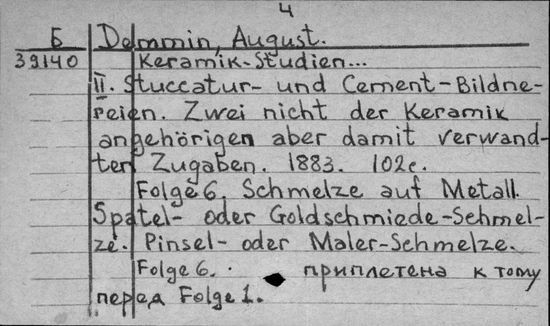 4
Б Demmin, August.
39140 Keramik-Studien...
II. Stuccatur- und Cement-Bildne-
reien. Zwei nicht der Keramik
angehörigen aber damit verwand-
ten Zugaben. 1883. 102c.
Folge 6. Schmelze auf Metall.
Spatel- oder Goldschmiede-Schmel-
ze. Pinsel- oder Maler-Schmelze.
Folge 6. приплетена к тому
перед Folge 1.